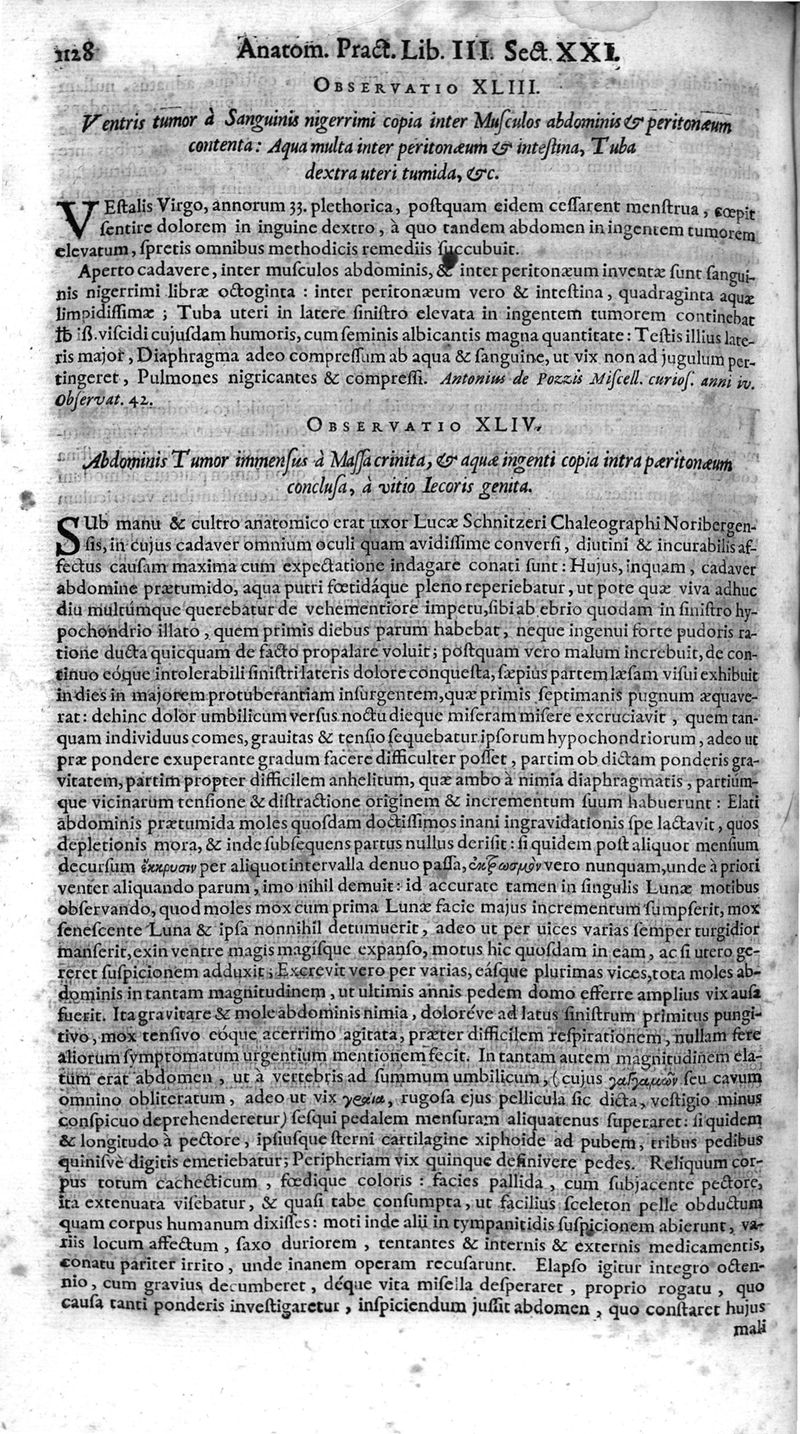 1128 Anatom. Pract. Lib. III. Sect. XXI.
OBSERVATIO XLIII.
Ventris tumor à Sanguinis nigerrimi copia inter Muſculos abdominis & peritonæum
contenta: Aqua multa inter peritonæum & inteſtina, Tuba
dextra uteri tumida, &c.
VEſtalis Virgo, annorum 33. plethorica, poſtquam eidem ceſſarent menſtrua, cœpit
ſentire dolorem in inguine dextro, à quo tandem abdomen in ingentem tumorem
elevatum, ſpretis omnibus methodicis remediis ſuccubuit.
Aperto cadavere, inter muſculos abdominis, & inter peritonæum inventæ ſunt ſangui-
nis nigerrimi libræ octoginta : inter peritonæum vero & inteſtina, quadraginta aquæ
limpidiſſimæ ; Tuba uteri in latere ſiniſtro elevata in ingentem tumorem continebat
℔ iß. viſcidi cujuſdam humoris, cum ſeminis albicantis magna quantitate : Teſtis illius late-
ris major, Diaphragma adeo compreſſum ab aqua & ſanguine, ut vix non ad jugulum per-
tingeret, Pulmones nigricantes & compreſſi. Antonius de Pozzis Miſcell. curioſ. anni iv.
Obſervat. 42.
OBSERVATIO XLIV.
Abdominis Tumor immenſus à Maſſa crinita, & aquæ ingenti copia intra pæritonæum
concluſa, à vitio Iecoris genita.
SUb manu & cultro anatomico erat uxor Lucæ Schnitzeri Chaleographi Noribergen-
ſis, in cujus cadaver omnium oculi quam avidiſſime converſi, diutini & incurabilis af-
fectus cauſam maxima cum expectatione indagare conati ſunt : Hujus, inquam, cadaver
abdomine prætumido, aqua putri fœtidáque pleno reperiebatur, ut pote quæ viva adhuc
diu multúmque querebatur de vehementiore impetu, ſibi ab ebrio quodam in ſiniſtro hy-
pochondrio illato, quem primis diebus parum habebat, neque ingenui forte pudoris ra-
tione ducta quicquam de facto propalare voluit; poſtquam vero malum increbuit, de con-
tinuo eóque intolerabili ſiniſtri lateris dolore conqueſta, ſæpius partem læſam viſui exhibuit
in dies in majorem protuberantiam inſurgentem, quæ primis ſeptimanis pugnum æquave-
rat : dehinc dolor umbilicum verſus noctu dieque miſeram miſere excruciavit, quem tan-
quam individuus comes, grauitas & tenſio ſequebatur ipſorum hypochondriorum, adeo ut
præ pondere exuperante gradum facere difficulter poſſet, partim ob dictam ponderis gra-
vitatem, partim propter difficilem anhelitum, quæ ambo à nimia diaphragmatis, partium-
que vicinarum tenſione & diſtractione originem & incrementum ſuum habuerunt : Elati
abdominis prætumida moles quoſdam doctiſſimos inani ingravidationis ſpe lactavit, quos
depletionis mora, & inde ſubſequens partus nullus deriſit : ſi quidem poſt aliquot menſium
decurſum ἔκκρυσιν per aliquot intervalla denuo paſſa, vero nunquam, unde à priori
venter aliquando parum, imo nihil demuit : id accurate tamen in ſingulis Lunæ motibus
obſervando, quod moles mox cum prima Lunæ facie majus incrementum ſumpſerit, mox
ſeneſcente Luna & ipſa nonnihil detumuerit, adeo ut per uices varias ſemper turgidior
manſerit, exin ventre magis magiſque expanſo, motus hic quoſdam in eam, ac ſi utero ge-
reret ſuſpicionem adduxit ; Excrevit vero per varias, eáſque plurimas vices, tota moles ab-
dominis in tantam magnitudinem, ut ultimis annis pedem domo efferre amplius vix auſa
fuerit. Ita gravitate & mole abdominis nimia, doloréve ad latus ſiniſtrum primitus pungi-
tivo, mox tenſivo eóque acerrimo agitata, præter difficilem reſpirationem, nullam fere
aliorum ſymptomatum urgentium mentionem fecit. In tantam autem magnitudinem ela-
tum erat abdomen, ut à vertebris ad ſummum umbilicum, (cujus seu cavum
omnino obliteratum, adeo ut vix γραῖα, rugoſa ejus pellicula ſic dicta, veſtigio minus
conſpicuo deprehenderetur) ſeſqui pedalem menſuram aliquatenus ſuperaret : ſi quidem
& longitudo à pectore, ipſiuſque ſterni cartilagine xiphoide ad pubem, tribus pedibus
quiniſvè digitis emetiebatur; Peripheriam vix quinque definivere pedes. Reliquum cor-
pus totum cachecticum, fœdique coloris : facies pallida, cum ſubjacente pectore,
ita extenuata viſebatur, & quaſi tabe conſumpta, ut facilius ſceleton pelle obductum
quam corpus humanum dixiſſes : moti inde alii in tympanitidis ſuſpicionem abierunt, va-
riis locum affectum, ſaxo duriorem, tentantes & internis & externis medicamentis,
conatu pariter irrito, unde inanem operam recuſarunt. Elapſo igitur integro octen-
nio, cum gravius decumberet, déque vita miſella deſperaret, proprio rogatu, quo
cauſa tanti ponderis inveſtigaretur, inſpiciendum juſſit abdomen, quo conſtaret hujus
mali